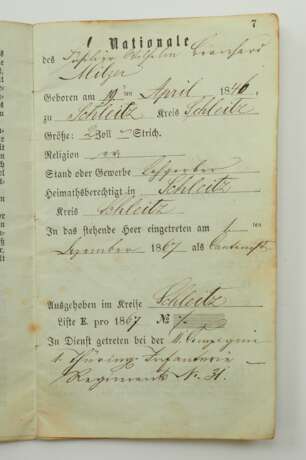 7
Nationale
des Wilhelm Bernhard
Milzer
Geboren am ten April 1846
zu Schleitz Kreis Schleitz
Größe: 2 Zoll Strich.
Religion ev
Stand oder Gewerbe
Heimathsberechtigt in Schleitz
Kreis Schleitz
In das stehende Heer eingetreten am 1 ten
Dezember 1867 als
Ausgehoben im Kreise Schleitz
Liste E pro 1867 №
In Dienst getreten bei der 11. Compagnie
Thüring. Infanterie
Regiment N. 31.